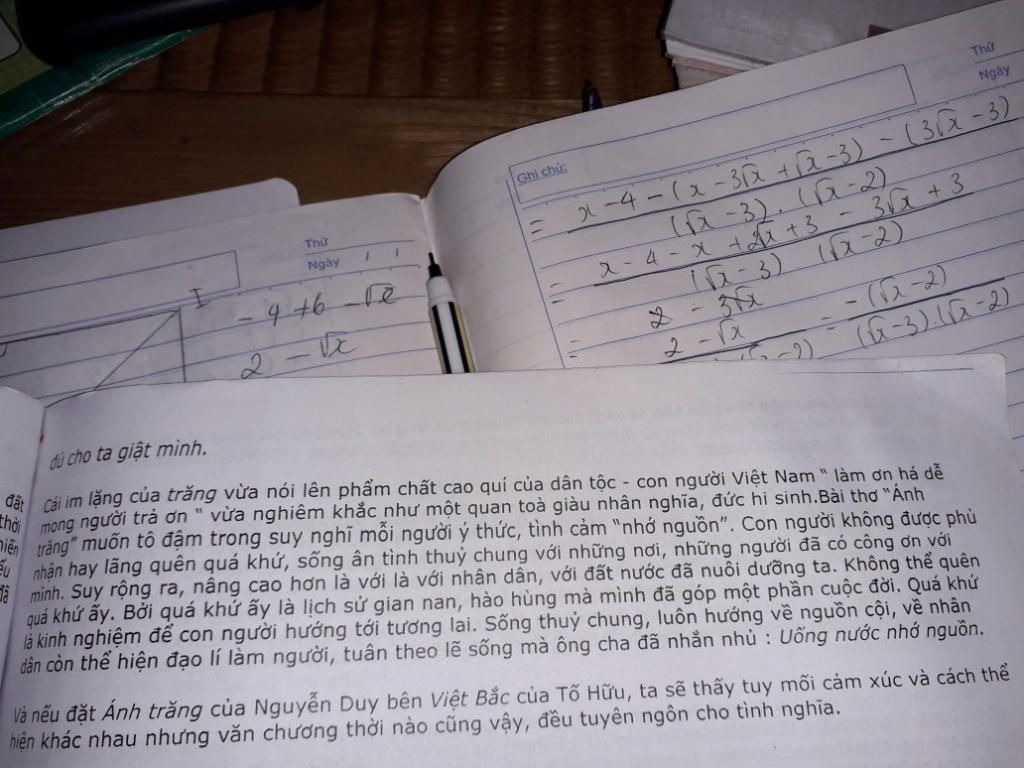 Thứ
Ngày
Ghi chú:
= x - 4 - (x - 3√x + √x - 3) - (3√x - 3)
(√x - 3) . (√x - 2)
= x - 4 - x + 2√x + 3 - 3√x + 3
(√x - 3) (√x - 2)
2 - 3√x
= 2 - √x = -(√x - 2)
(√x - 3).(√x - 2)
Thứ
Ngày / /
I
- 4 + 6 - √x
2 - √x
đủ cho ta giật mình.
Cái im lặng của trăng vừa nói lên phẩm chất cao quí của dân tộc - con người Việt Nam " làm ơn há dễ
mong người trả ơn " vừa nghiêm khắc như một quan toà giàu nhân nghĩa, đức hi sinh.Bài thơ "Ánh
trăng" muốn tô đậm trong suy nghĩ mỗi người ý thức, tình cảm "nhớ nguồn". Con người không được phủ
nhận hay lãng quên quá khứ, sống ân tình thuỷ chung với những nơi, những người đã có công ơn với
mình. Suy rộng ra, nâng cao hơn là với là với nhân dân, với đất nước đã nuôi dưỡng ta. Không thể quên
quá khứ ấy. Bởi quá khứ ấy là lịch sử gian nan, hào hùng mà mình đã góp một phần cuộc đời. Quá khứ
là kinh nghiệm để con người hướng tới tương lai. Sống thuỷ chung, luôn hướng về nguồn cội, về nhân
dân còn thể hiện đạo lí làm người, tuân theo lẽ sống mà ông cha đã nhắn nhủ : Uống nước nhớ nguồn.
Và nếu đặt Ánh trăng của Nguyễn Duy bên Việt Bắc của Tố Hữu, ta sẽ thấy tuy mối cảm xúc và cách thể
hiện khác nhau nhưng văn chương thời nào cũng vậy, đều tuyên ngôn cho tình nghĩa.
đất
thời